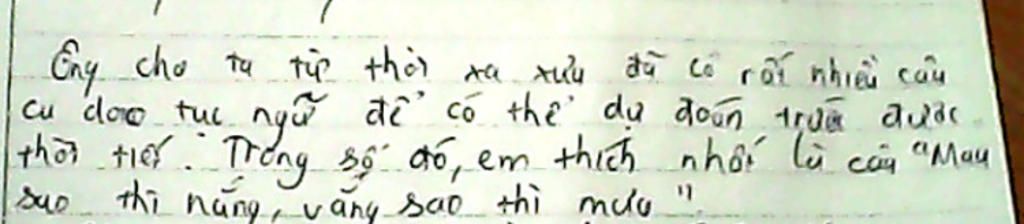 Ông cha ta từ thời xa xưa đã có rất nhiều câu
ca dao tục ngữ để có thể dự đoán trước được
thời tiết. Trong số đó, em thích nhất là câu "Mau
sao thì nắng, vắng sao thì mưa".